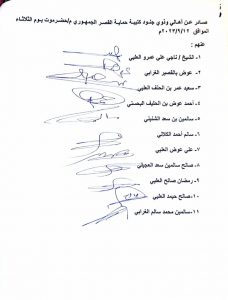 صادر عن أهالي وذوي جنود كتيبة حماية القصر الجمهوري م/حضرموت يوم الثلاثاء
الموافق ٢٠٢٣/٩/١٢م
عنهم :
١- الشيخ / ناجي علي عمرو العلبي
٢- عوض بالقصير الغرابي
٣- سعيد عمر بن الحنف العلبي
٤- أحمد عوض بن الحنيف البحسني
٥- سالمين بن سعد الشليلي
٦- سالم أحمد الكلالي
٧- علي عوض العلبي
٨- صالح سالمين سعد العجيلي
٩- رمضان صالح العلبي
١٠- صالح حيمد العلبي
١١- سالمين محمد سالم الغرابي